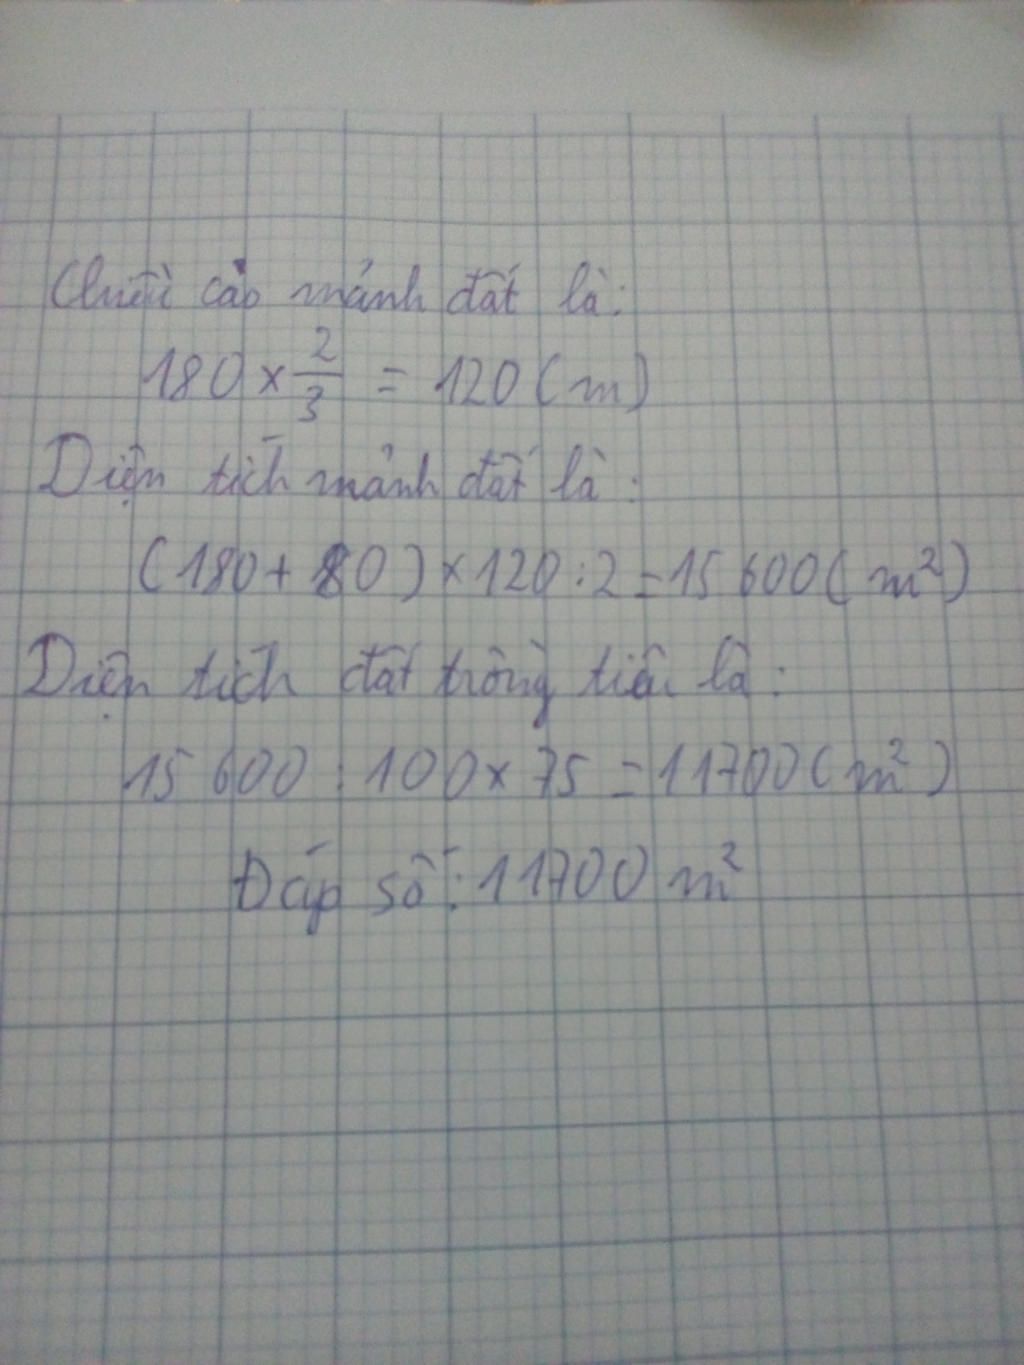 Chiều cao mảnh đất là:
180 × 2/3 = 120 (m)
Diện tích mảnh đất là:
(180 + 80) × 120 : 2 = 15 600 (m²)
Diện tích đất trồng tiêu là:
15 600 : 100 × 75 = 11700 (m²)
Đáp số: 11700 m²